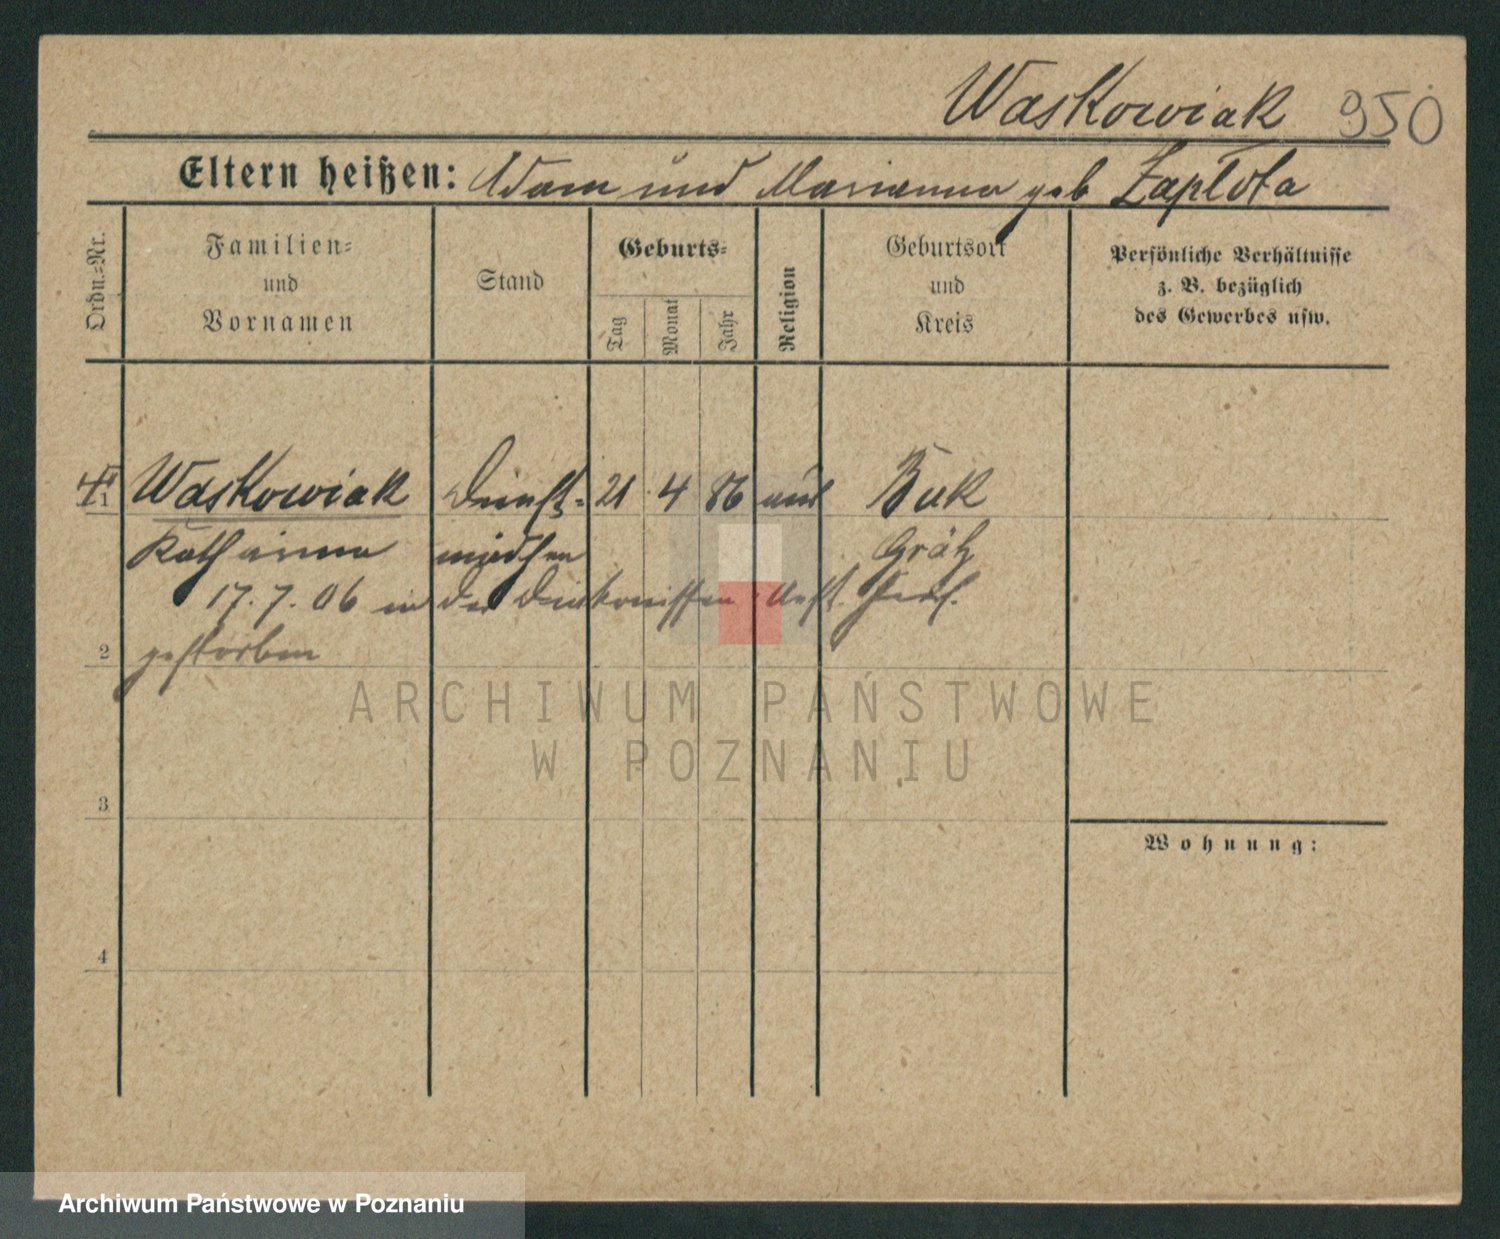 Waskowiak 950
Eltern heißen: Adam und Marianna geb Zaplota
Ordn.=Nr.
Familien=
und
Vornamen
Stand
Geburts=
Tag
Monat
Jahr
Religion
Geburtsort
und
Kreis
Persönliche Verhältnisse
z. B. bezüglich
des Gewerbes usw.
1 Waskowiak Dienst= 21 4 86 Buk
Katharina mädchen Grätz
17. 7. 06 in der Diakonissen Anst.
2 gestorben
3
4
Wohnung:
ARCHIWUM PAŃSTWOWE
W POZNANIU
Archiwum Państwowe w Poznaniu